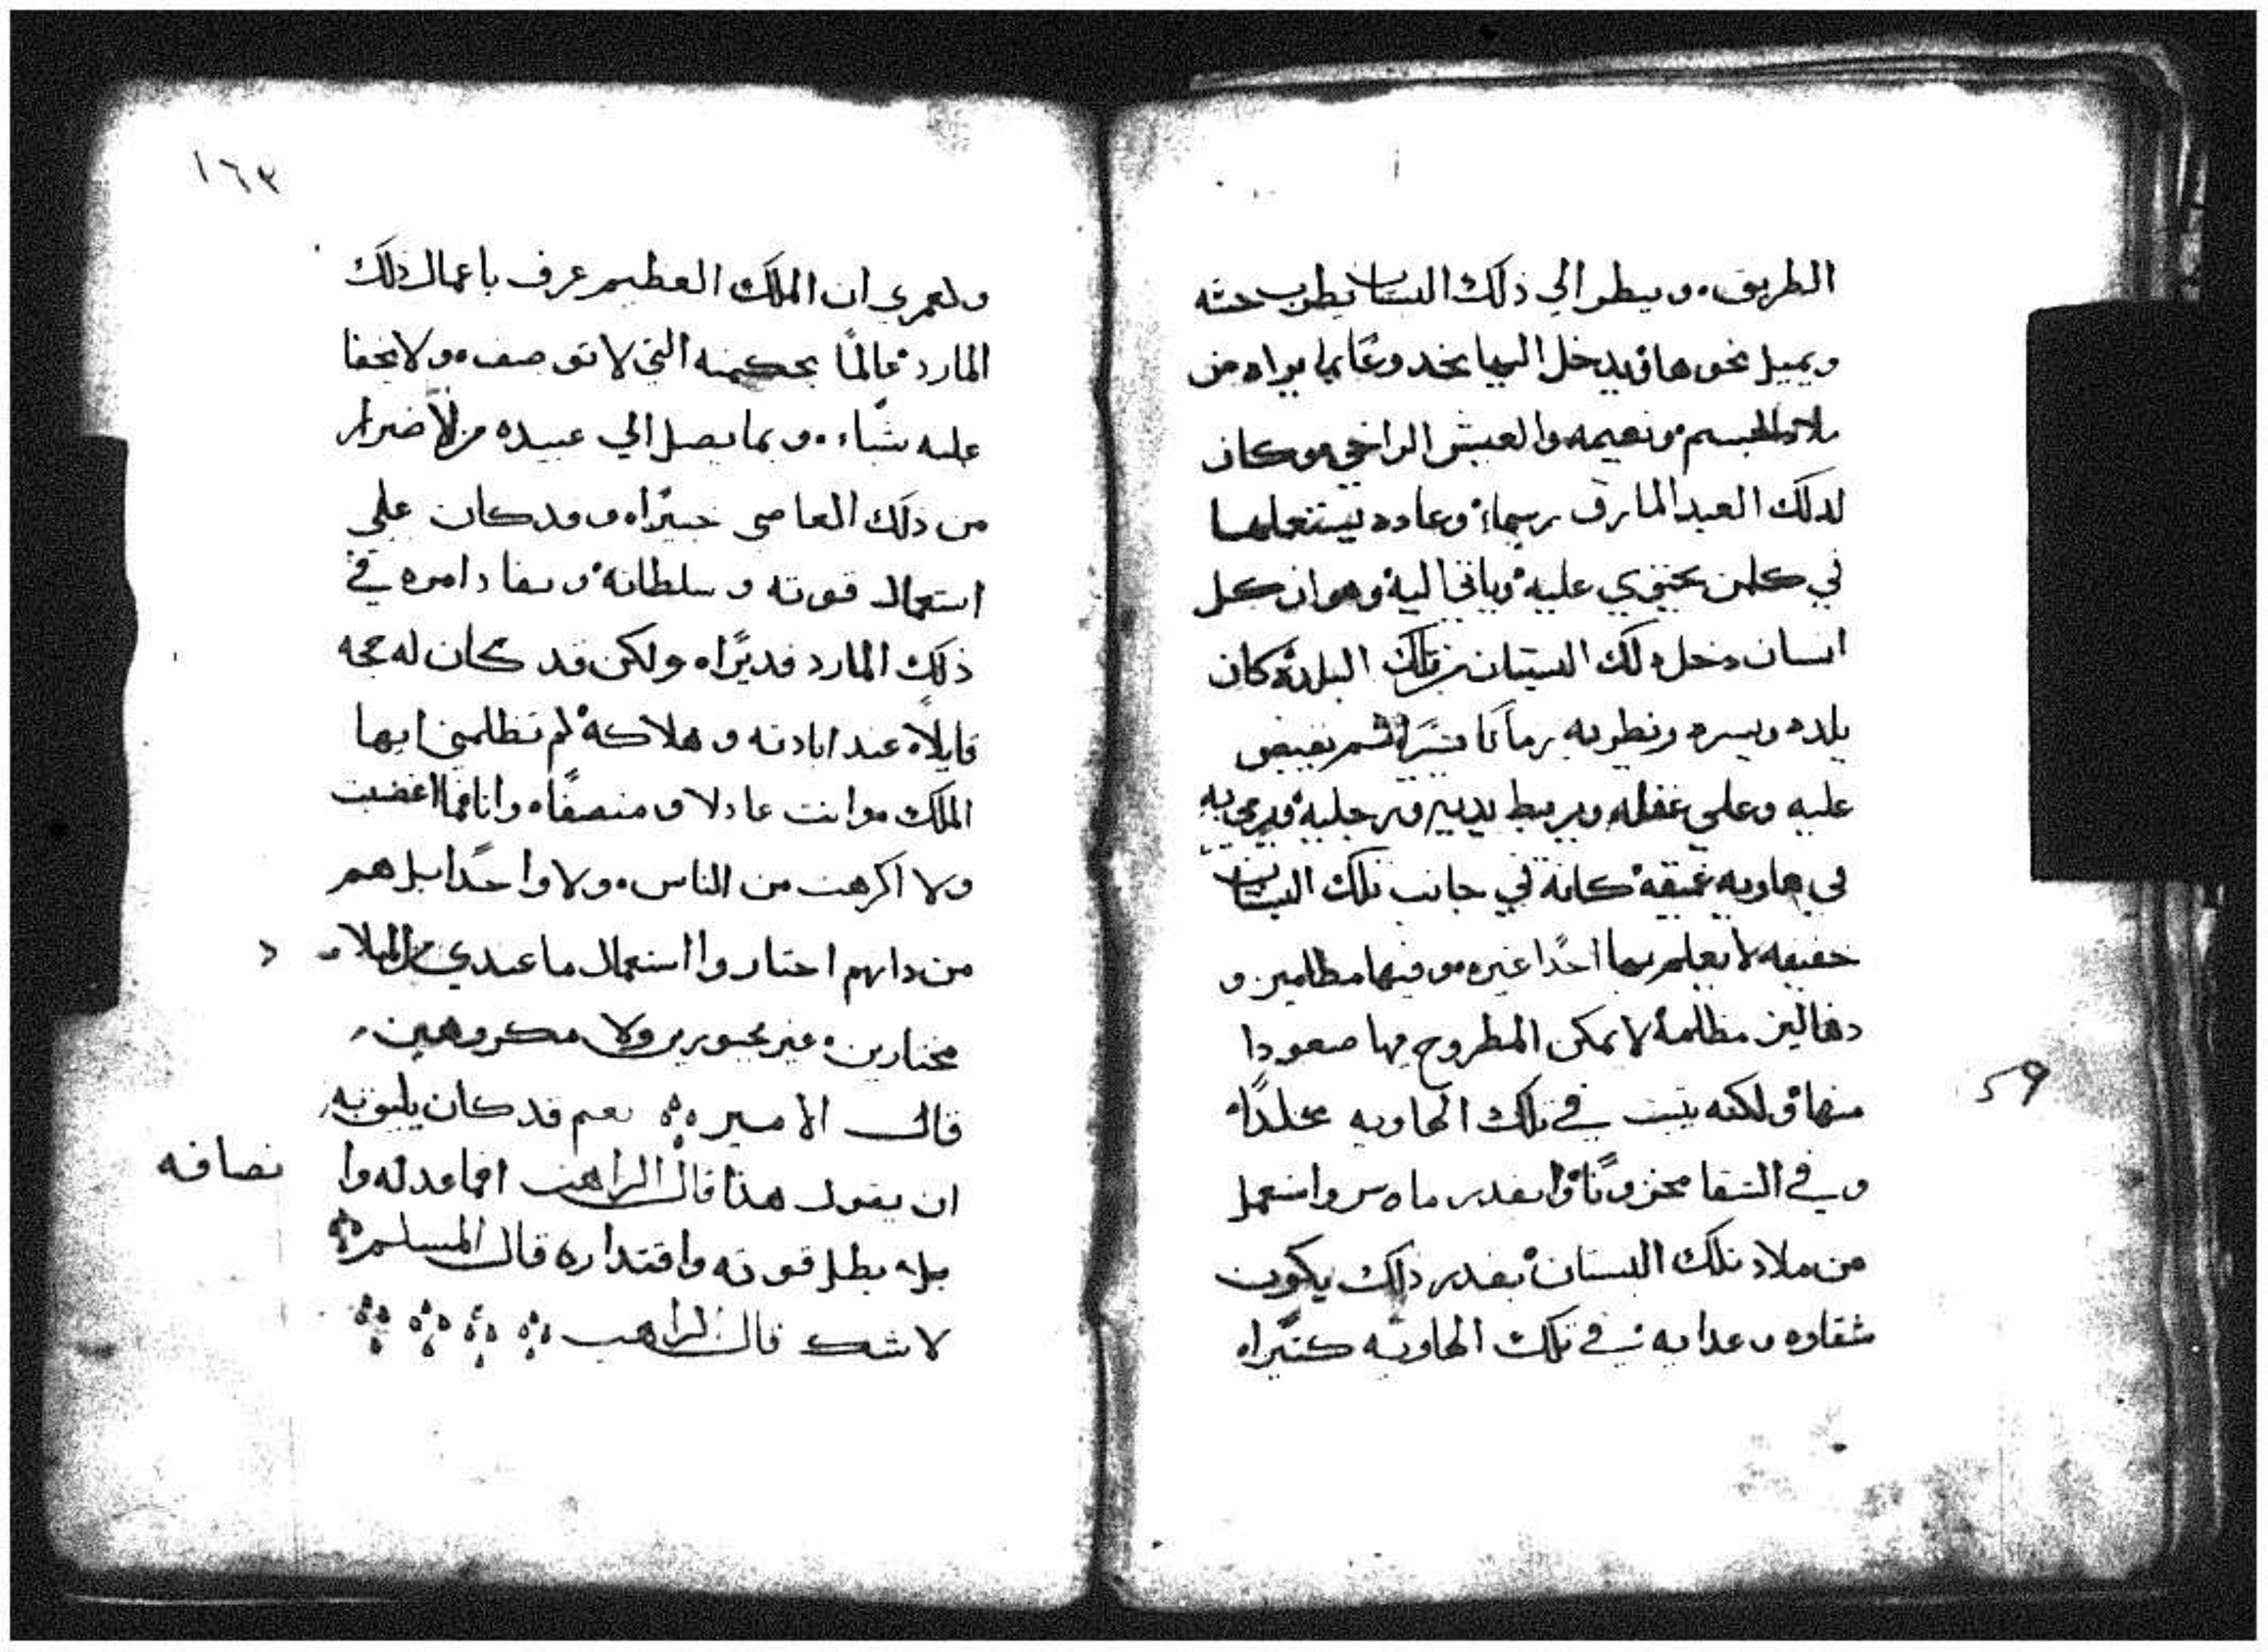 الطريق، وينظر الي ذلك البستان يطرب حسه
ويميل نحوها ويدخل اليها مخدوعًا بما يراه من
ملاد الجسم ونعيمه والعيش الراخي وكان
لدلك العبد المارق رسماء وعاده يستعملها
في كلمن يحتوي عليه وياتي اليه وهو ان كل
انسان دخل دلك البستان من تلك البلده كان
يلده ويسره ويطربه زمانًا يسيرًا ثم يقبض
عليه وعلي غفله ويربط يديه ورجليه ويرمي به
في هاويه عميقه كاينه في جانب تلك البستان
خفيفه لا يعلم بها احدًا غيره وفيها مطامير و
دهاليز مظلمه لا يمكن المطروح فيها صعودا
منها ولكنه يبيت في تلك الهاويه مخلدًا
وفي الشقا محزونًا وبقدر ما واستعمل
من ملاد تلك البستان بقدر ذلك يكون
شقاوه وعدابه في تلك الهاويه كثيراه
59
١٦٣
ولعمري ان الملك العظيم عرف باعمال ذلك
المارد عالمًا بحكمته التي لا توصف ولا يخفا
عليه شياء وبما يصل الي عبيده من الاضرار
من دلك العاصي خبيرًا وقد كان علي
استعمال قوته وسلطانه ونفاد امره في
ذلك المارد قديرًا ولكن قد كان له حجه
قايلاً عند ابادته وهلاكه لم تظلمني ايها
الملك وانت عادلا ومنصفًا وانا فما اغضبت
ولا اكرهت من الناس ولا واحدًا بل هم
من داتهم احتاروا استعمال ما عندي من الملاد
مختارين غير مجبورين ولا مكروهين
قال الامير نعم قد كان يليق به
ان يقول هذا قال الراهب افما عدله وا
نصافه
يبطل قوته واقتداره قال المسلم
لا شك قال الراهب